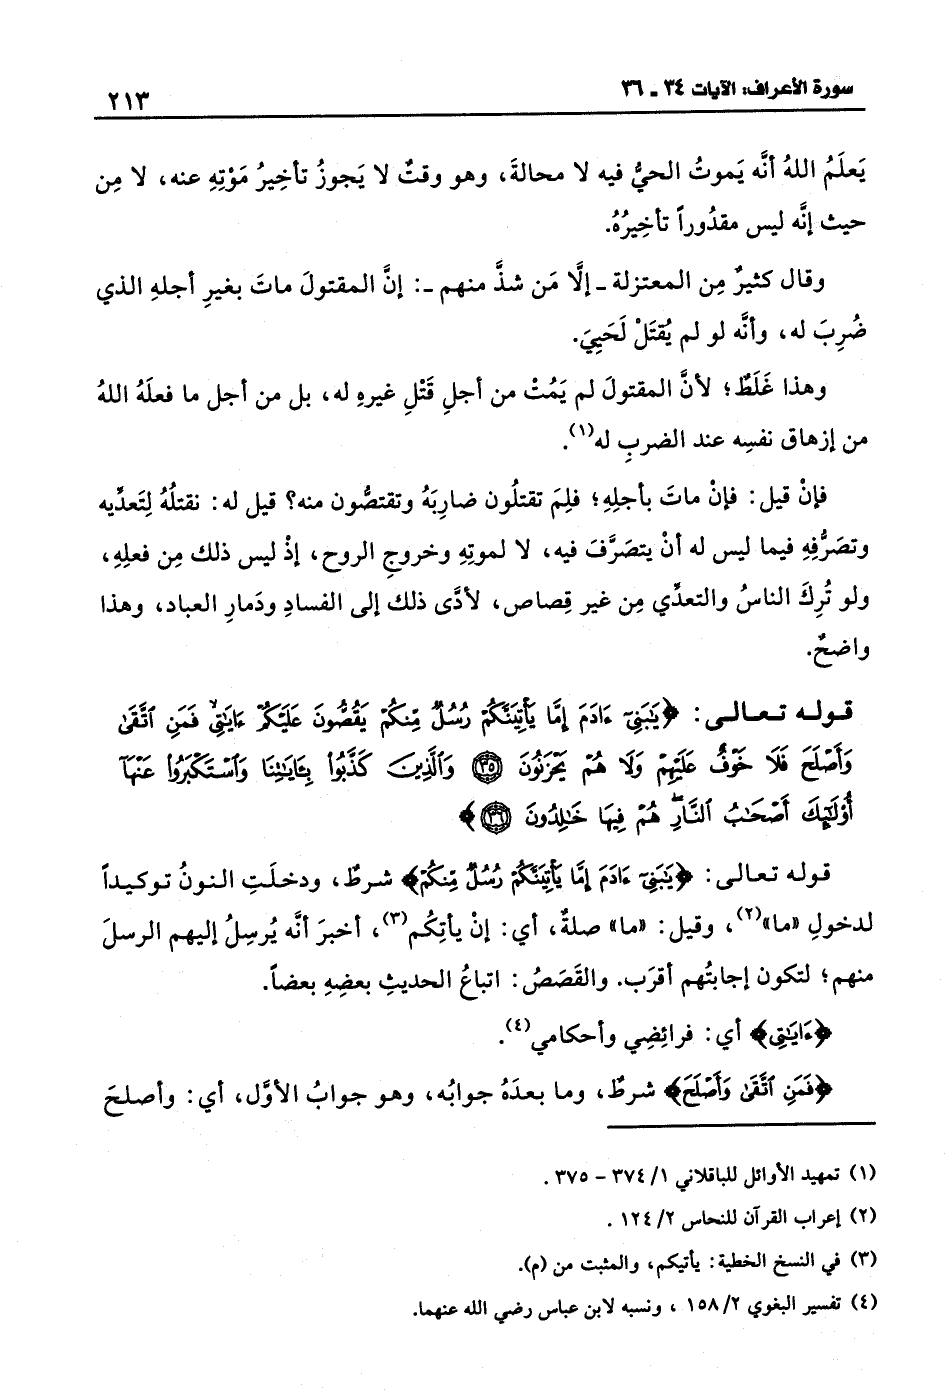 سورة الأعراف: الآيات ٣٤ - ٣٦
٢١٣
يَعلَمُ اللهُ أنَّه يَموتُ الحيُّ فيه لا محالةَ، وهو وقتٌ لا يَجوزُ تأخِيرُ مَوْتِهِ عنه، لا مِن
حيث إنَّه ليس مقدُوراً تأخِيرُهُ.
وقال كثيرٌ مِن المعتزلة ـ إلَّا مَن شذَّ منهم ـ: إنَّ المقتولَ ماتَ بغيرِ أجلهِ الذي
ضُرِبَ له، وأنَّه لو لم يُقتَلْ لَحَيِيَ.
وهذا غَلَطٌ؛ لأنَّ المقتولَ لم يَمُتْ من أجلِ قَتْلِ غيرِهِ له، بل من أجل ما فعلَهُ اللهُ
من إزهاق نفسِه عند الضربِ له(١).
فإنْ قيل: فإنْ ماتَ بأجلِهِ؛ فلِمَ تقتلُون ضارِبَهُ وتقتصُّون منه؟ قيل له: نقتلُهُ لِتَعدِّيه
وتصَرُّفِهِ فيما ليس له أنْ يتصَرَّفَ فيه، لا لموتِهِ وخروجِ الروح، إذْ ليس ذلك مِن فعلِهِ،
ولو تُرِكَ الناسُ والتعدِّي مِن غير قِصاص، لأدَّى ذلك إلى الفسادِ ودَمارِ العباد، وهذا
واضحٌ.
قوله تعالى: ﴿يَٰبَنِىٓ ءَادَمَ إِمَّا يَأْتِيَنَّكُمْ رُسُلٌ مِّنكُمْ يَقُصُّونَ عَلَيْكُمْ ءَايَٰتِى ۙ فَمَنِ ٱتَّقَىٰ
وَأَصْلَحَ فَلَا خَوْفٌ عَلَيْهِمْ وَلَا هُمْ يَحْزَنُونَ ٣٥ وَٱلَّذِينَ كَذَّبُوا۟ بِـَٔايَٰتِنَا وَٱسْتَكْبَرُوا۟ عَنْهَآ
أُو۟لَٰٓئِكَ أَصْحَٰبُ ٱلنَّارِ ۖ هُمْ فِيهَا خَٰلِدُونَ ٣٦﴾
قوله تعالى: ﴿يَٰبَنِىٓ ءَادَمَ إِمَّا يَأْتِيَنَّكُمْ رُسُلٌ مِّنكُمْ﴾ شرطٌ، ودخلَتِ النونُ توكيداً
لدخولِ «ما»(٢)، وقيل: «ما» صلةٌ، أي: إنْ يأتِكُم(٣)، أخبرَ أنَّه يُرسِلُ إليهم الرسلَ
منهم؛ لتكون إجابتُهم أقرَب. والقَصَصُ: اتباعُ الحديثِ بعضِهِ بعضاً.
﴿ءَايَٰتِى﴾ أي: فرائِضِي وأحكامي(٤).
﴿فَمَنِ ٱتَّقَىٰ وَأَصْلَحَ﴾ شرطٌ، وما بعدَهُ جوابُه، وهو جوابُ الأوَّل، أي: وأصلحَ
(١) تمهيد الأوائل للباقلاني ١/ ٣٧٤ - ٣٧٥ .
(٢) إعراب القرآن للنحاس ٢/ ١٢٤ .
(٣) في النسخ الخطية: يأتيكم، والمثبت من (م).
(٤) تفسير البغوي ٢/ ١٥٨ ، ونسبه لابن عباس رضي الله عنهما.